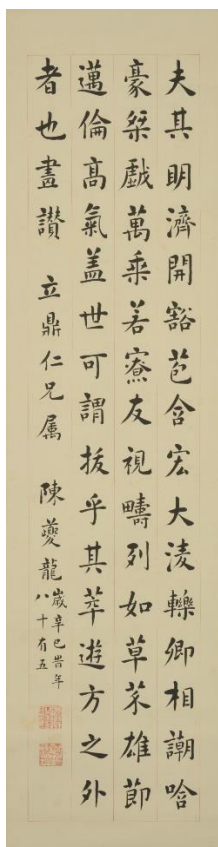 夫其明濟開豁苞含宏大淩轢卿相謿哈
豪桀戯萬乘若寮友視疇列如草芥雄節
邁倫高氣盖世可謂拔乎其萃遊方之外
者也畫讚 立鼎仁兄属 陳夔龍
歲辛巳時年
八十有五